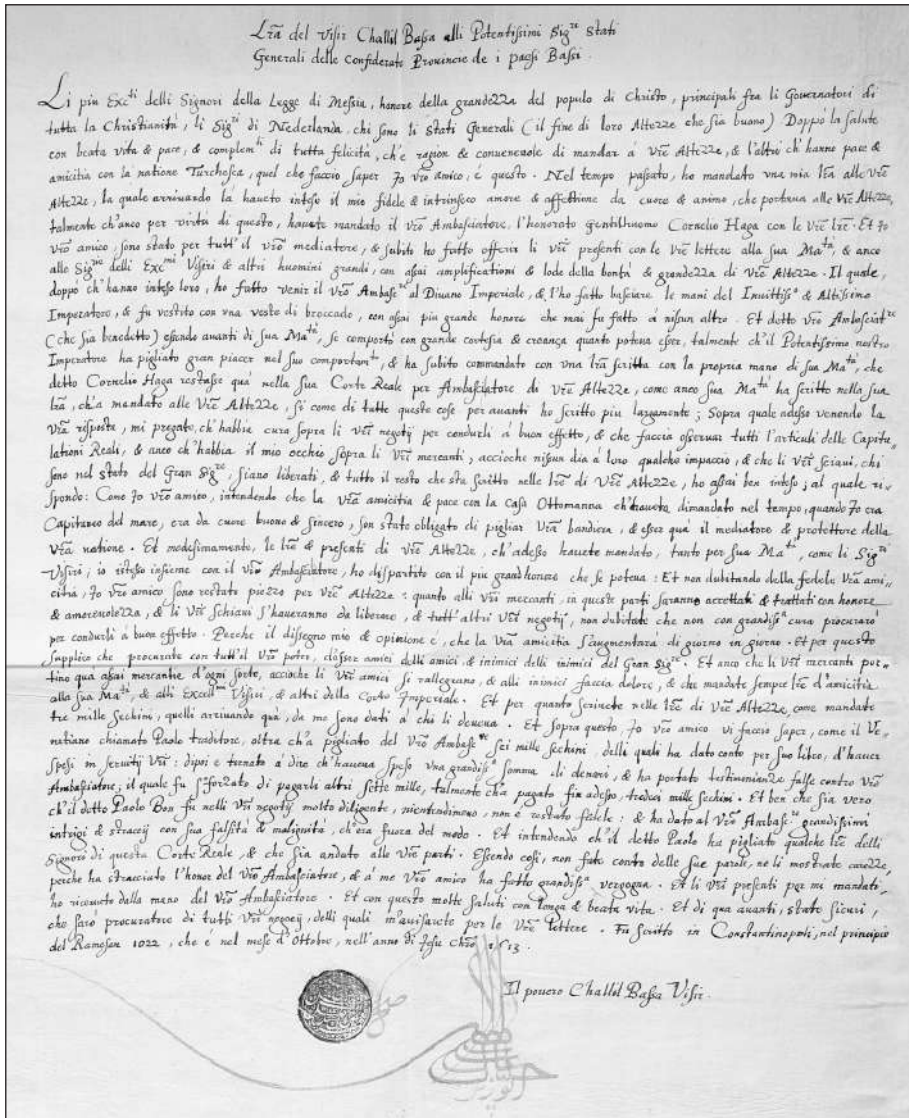 Lr̃a del Visir Challil Bassa alli Potentissimi Sig.ri Stati
Generali delle Confiderate Provincie de i paesi Bassi.
Li piu Exc.ti delli Signori della Legge di Messia, honore della grandezza del populo di Christo, principali fra li Governatori di
tutta la Christianità, li Sig.ri di Nederlanda, chi sono li stati Generali (il fine di loro Altezze che sia buono) Doppo la salute
con beata vita & pace, & complem.ti di tutta felicità, ch'e ragion & convenevole di mandar á Vr̃e Altezze, & l'altri ch'hanno pace &
amicitia con la natione Turchesca, quel che faccio saper Jo vr̃o amico, è questo. Nel tempo passato, ho mandato una mia lr̃a alle Vr̃e
Altezze, la quale arrivando là havete inteso il mio fidele & intrinseco amore & affettione da cuore & animo, che portava alle Vr̃e Altezze,
talmente ch'anco per virtù di questo, havete mandato il vr̃o Ambasciatore, l'honorato gentilhuomo Cornelio Haga con le Vr̃e lr̃e. Et Jo
vr̃o amico, sono stato per tutt'il vr̃o mediatore, & subito ho fatto offerir li vr̃i presenti con le Vr̃e lettere alla sua Ma.tà, & anco
allo Sig.ri delli Exc.mi Visiri & altri huomini grandi, con assai amplificationi & lode della bontà & grandezza di Vr̃e Altezze. Il quale,
doppò ch'hanno inteso loro, ho fatto venir il vr̃o Ambas.re al Divano Imperiale, & l'ho fatto basciare le mani del Invittiss.o & Altissimo
Imperatore, & fu vestito con una veste di broccado, con assai piu grande honore che mai fu fatto á nissun altro. Et detto vr̃o Ambasciat.re
(che sia benedetto) essendo avanti di sua Ma.tà, se comportò con grande cortesia & creança quanto poteva esser, talmente ch'il Potentissimo nostro
Imperatore ha pigliato gran piacer nel suo comportam.to, & ha subito commandato con una lr̃a scritta con la propria mano di sua Ma.tà, che
detto Cornelio Haga restasse quà nella sua Corte Reale per Ambasciatore di Vr̃e Altezze, come anco sua Ma.tà ha scritto nella sua
lr̃a, ch'a mandato alle Vr̃e Altezze, si come di tutte queste cose per avanti ho scritto piu largamente; Sopra quale adesso venendo la
Vr̃a risposta, mi pregate, ch'habbia cura sopra li vr̃i negotij per condurli á buon effetto, & che faccia osservar tutti l'articuli delle Capitu-
lationi Reali, & anco ch'habbia il mio occhio sopra li vr̃i mercanti, accioche nissun dia á loro qualche impaccio, & che li vr̃i sciavi, chi
sono nel stato del Gran Sig.re, siano liberati, & tutto il resto che sta scritto nelle lr̃e di Vr̃e Altezze, ho assai ben inteso; al quale ri-
spondo: Come Jo vr̃o amico, intendendo che la vr̃a amicitia & pace con la Casa Ottomanna ch'havete dimandato nel tempo, quando Jo era
Capitaneo del mare, era da cuore buono & sincero, son stato obligato di pigliar vr̃a bandiera, & esser quà il mediatore & protettore della
vr̃a natione. Et medesimamente, le lr̃e & presenti di Vr̃e Altezze, ch'adesso havete mandato, tanto per sua Ma.tà, come li Sig.ri
Visiri; io istesso insieme con il vr̃o Ambasciatore, ho dispartito con il piu grand honore che se poteva: Et non dubitando della fedele vr̃a ami-
citia, Jo vr̃o amico sono restato piezzo per Vr̃e Altezze: quanto alli vr̃i mercanti, in queste parti saranno accettati & trattati con honore
& amorevolezza, & li vr̃i schiavi s'haveranno da liberare, & tutt'altri vr̃i negotij, non dubitate che non con grandiss.a cura procurarò
per condurli á buon effetto. Perche il dissegno mio & opinione è, che la vr̃a amicitia s'augmentarà di giorno in giorno. Et per questo
supplico che procurate con tutt'il vr̃o poter, d'esser amici delli amici & inimici delli inimici del Gran Sig.re. Et anco che li vr̃i mercanti por-
tino qua assai mercantie d'ogni sorte, accioche li vr̃i amici si rallegrano, & alli inimici faccia dolore, & che mandate sempre lr̃e d'amicitia
alla sua Ma.tà, & alli Excell.mi Visiri, & altri della Corte Imperiale. Et per quanto scrivete nelle lr̃e di Vr̃e Altezze, come mandate
tre mille sechini, quelli arrivando quà, da me sono dati a chi li deveva. Et sopra questo, Jo vr̃o amico vi faccio saper, come il Ve-
netiano chiamato Paolo traditore, oltra ch'a pigliato del vr̃o Ambas.re sei mille sechini, delli quali ha dato conto per suo libro, d'haver
spesi in servitij vr̃i: dipoi e tornato á dire ch'haveva speso una grandiss.a somma di denari, & ha portato testimonianze false contro vr̃o
Ambasciatore; il quale fu sforzato di pagarli altri sette mille, talmente ch'a pagato fin adesso, tredeci mille sechini. Et ben che sia vero
ch'il detto Paolo Bon fu nelli vr̃i negotij molto diligente, nientendimeno, non è restato fidele: & ha dato al vr̃o Ambas.re grandissimi
intrigi & stracij con sua falsità & malignità, ch'era fuora del modo. Et intendendo ch'il detto Paolo ha pigliato qualche lr̃e delli
Signori di questa Corte Reale, & che sia andato alle Vr̃e parti. Essendo cosi, non fate conto delle sue parole, ne li mostrate carezze,
perche ha stracciato l'honor del vr̃o Ambasciatore, & á me vr̃o amico ha fatto grandiss.a vergogna. Et li vr̃i presenti per mi mandati,
ho ricevuto dalla mano del vr̃o Ambasciatore. Et con questo molte saluti con longa & beata vita. Et di qua avanti, state sicuri,
che sarò procuratore di tutti vr̃i negocij, delli quali m'avisarete per le Vr̃e lettere. Fu scritto in Constantinopoli, nel principio
del Ramesan 1022, che è nel mese d'Ottobre, nell'anno di Jesu Chr̃o 1613
Il povero Challil Bassa Visir.